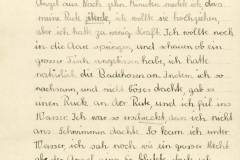 Angel aus. Nach zehn Minuten merkte ich, dass
meine Rute zitterte, ich wollte sie hochziehen,
aber ich hatte zu wenig Kraft. Ich wollte noch
in die Aare springen, und schauen ob ein
grosser Fisch angebissen habe, ich hatte
natürlich die Badehosen an. Indem ich so
nachsann, und nichts böses dachte, gab es
einen Ruck an der Rute, und ich fiel ins
Wasser. Ich war so erschreckt dass ich nicht
ans Schwimmen dachte. So kam ich unter
Wasser, ich sah noch wie ein grosser Hecht